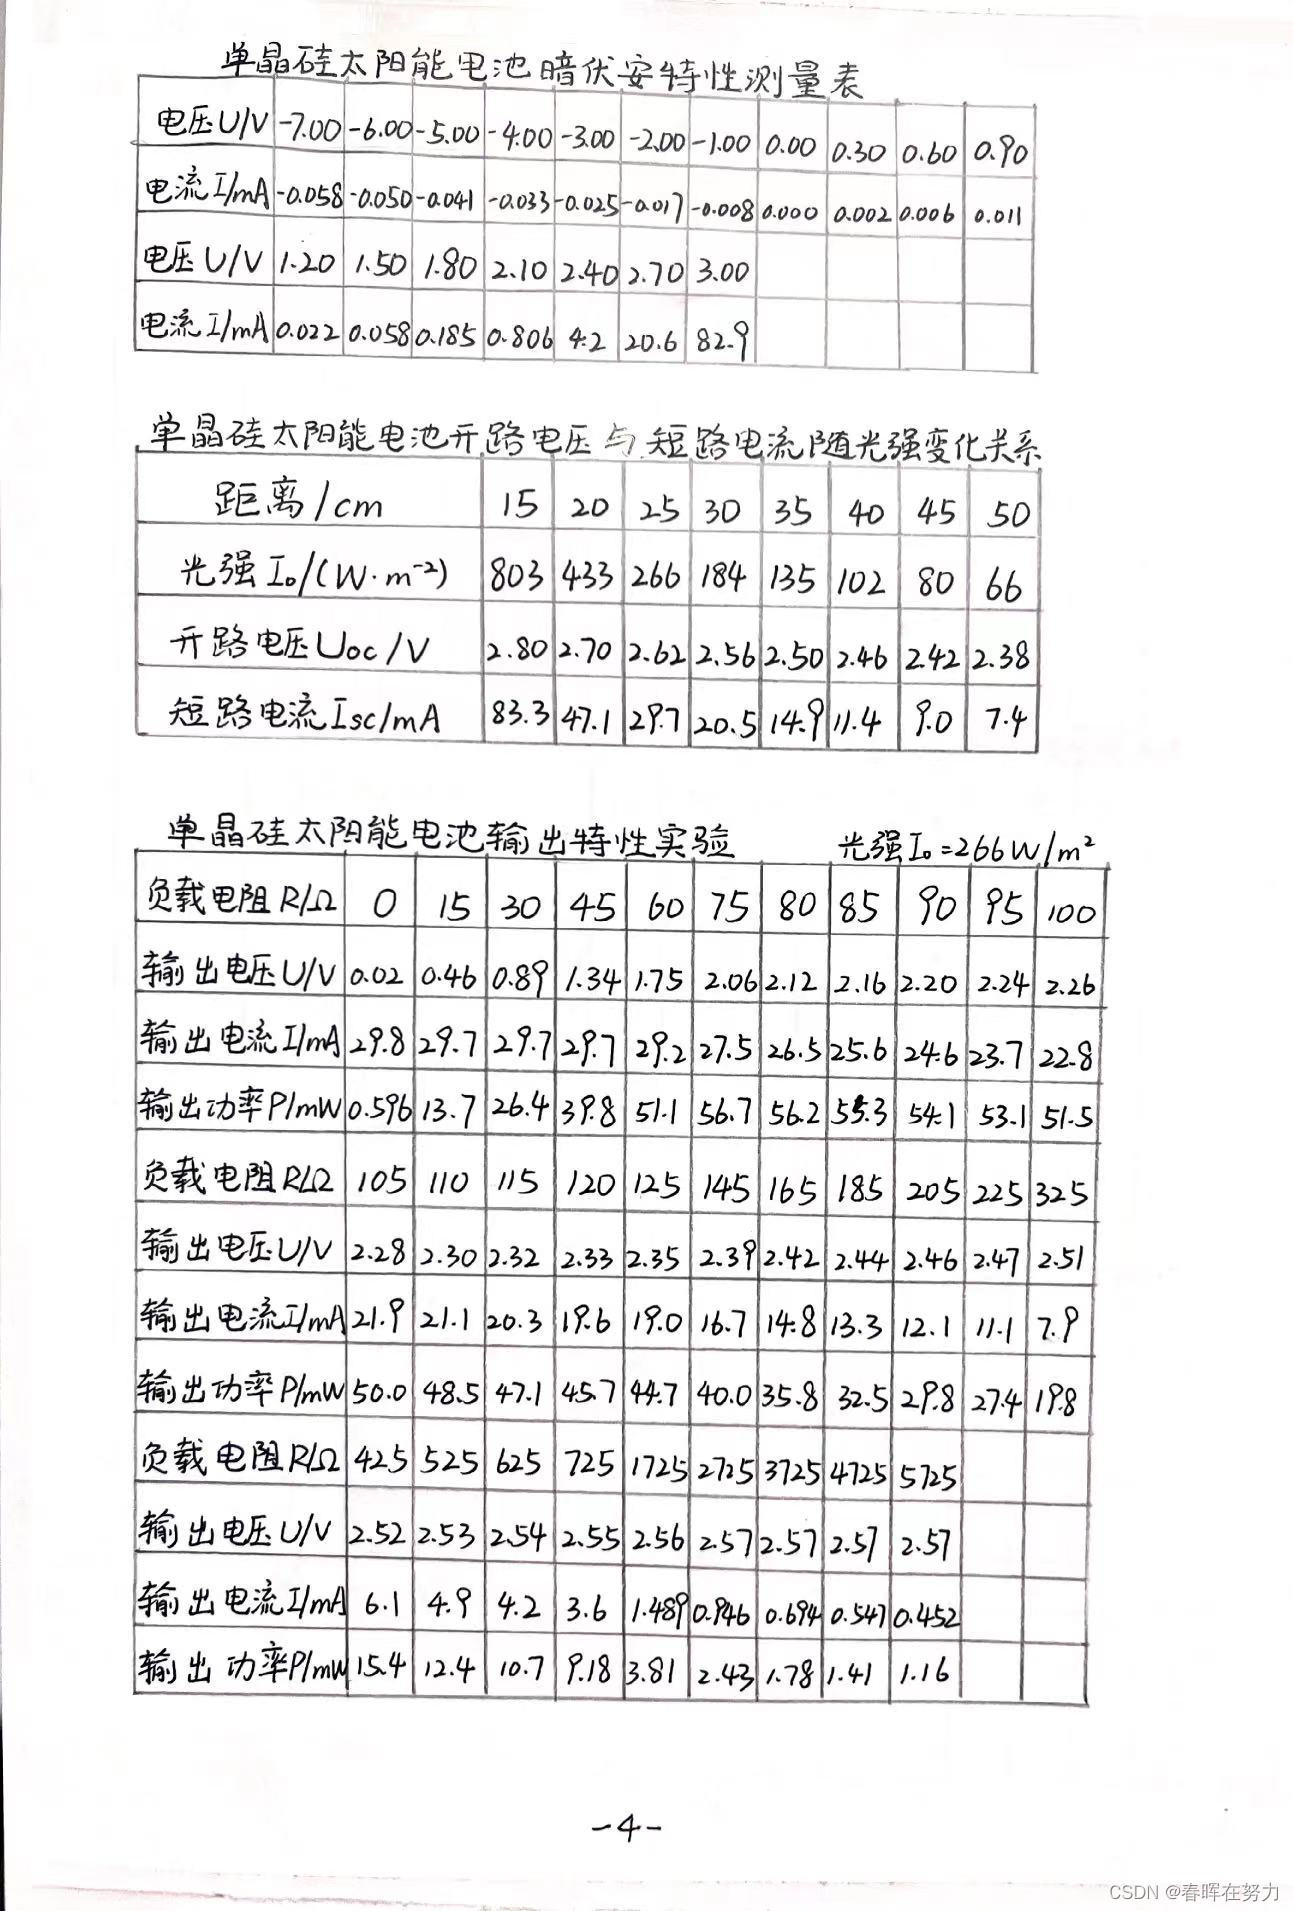 单晶硅太阳能电池暗伏安特性测量表
电压U/V -7.00 -6.00 -5.00 -4.00 -3.00 -2.00 -1.00 0.00 0.30 0.60 0.90
电流I/mA -0.058 -0.050 -0.041 -0.033 -0.025 -0.017 -0.008 0.000 0.002 0.006 0.011
电压U/V 1.20 1.50 1.80 2.10 2.40 2.70 3.00
电流I/mA 0.022 0.058 0.185 0.806 4.2 20.6 82.9
单晶硅太阳能电池开路电压与短路电流随光强变化关系
距离/cm 15 20 25 30 35 40 45 50
光强I₀/(W·m⁻²) 803 433 266 184 135 102 80 66
开路电压Uoc/V 2.80 2.70 2.62 2.56 2.50 2.46 2.42 2.38
短路电流Isc/mA 83.3 47.1 29.7 20.5 14.9 11.4 9.0 7.4
单晶硅太阳能电池输出特性实验 光强I₀=266W/m²
负载电阻R/Ω 0 15 30 45 60 75 80 85 90 95 100
输出电压U/V 0.02 0.46 0.89 1.34 1.75 2.06 2.12 2.16 2.20 2.24 2.26
输出电流I/mA 29.8 29.7 29.7 29.7 29.2 27.5 26.5 25.6 24.6 23.7 22.8
输出功率P/mW 0.596 13.7 26.4 39.8 51.1 56.7 56.2 55.3 54.1 53.1 51.5
负载电阻R/Ω 105 110 115 120 125 145 165 185 205 225 325
输出电压U/V 2.28 2.30 2.32 2.33 2.35 2.39 2.42 2.44 2.46 2.47 2.51
输出电流I/mA 21.9 21.1 20.3 19.6 19.0 16.7 14.8 13.3 12.1 11.1 7.9
输出功率P/mW 50.0 48.5 47.1 45.7 44.7 40.0 35.8 32.5 29.8 27.4 19.8
负载电阻R/Ω 425 525 625 725 1725 2725 3725 4725 5725
输出电压U/V 2.52 2.53 2.54 2.55 2.56 2.57 2.57 2.57 2.57
输出电流I/mA 6.1 4.9 4.2 3.6 1.489 0.946 0.694 0.547 0.452
输出功率P/mW 15.4 12.4 10.7 9.18 3.81 2.43 1.78 1.41 1.16
-4-
CSDN @春晖在努力